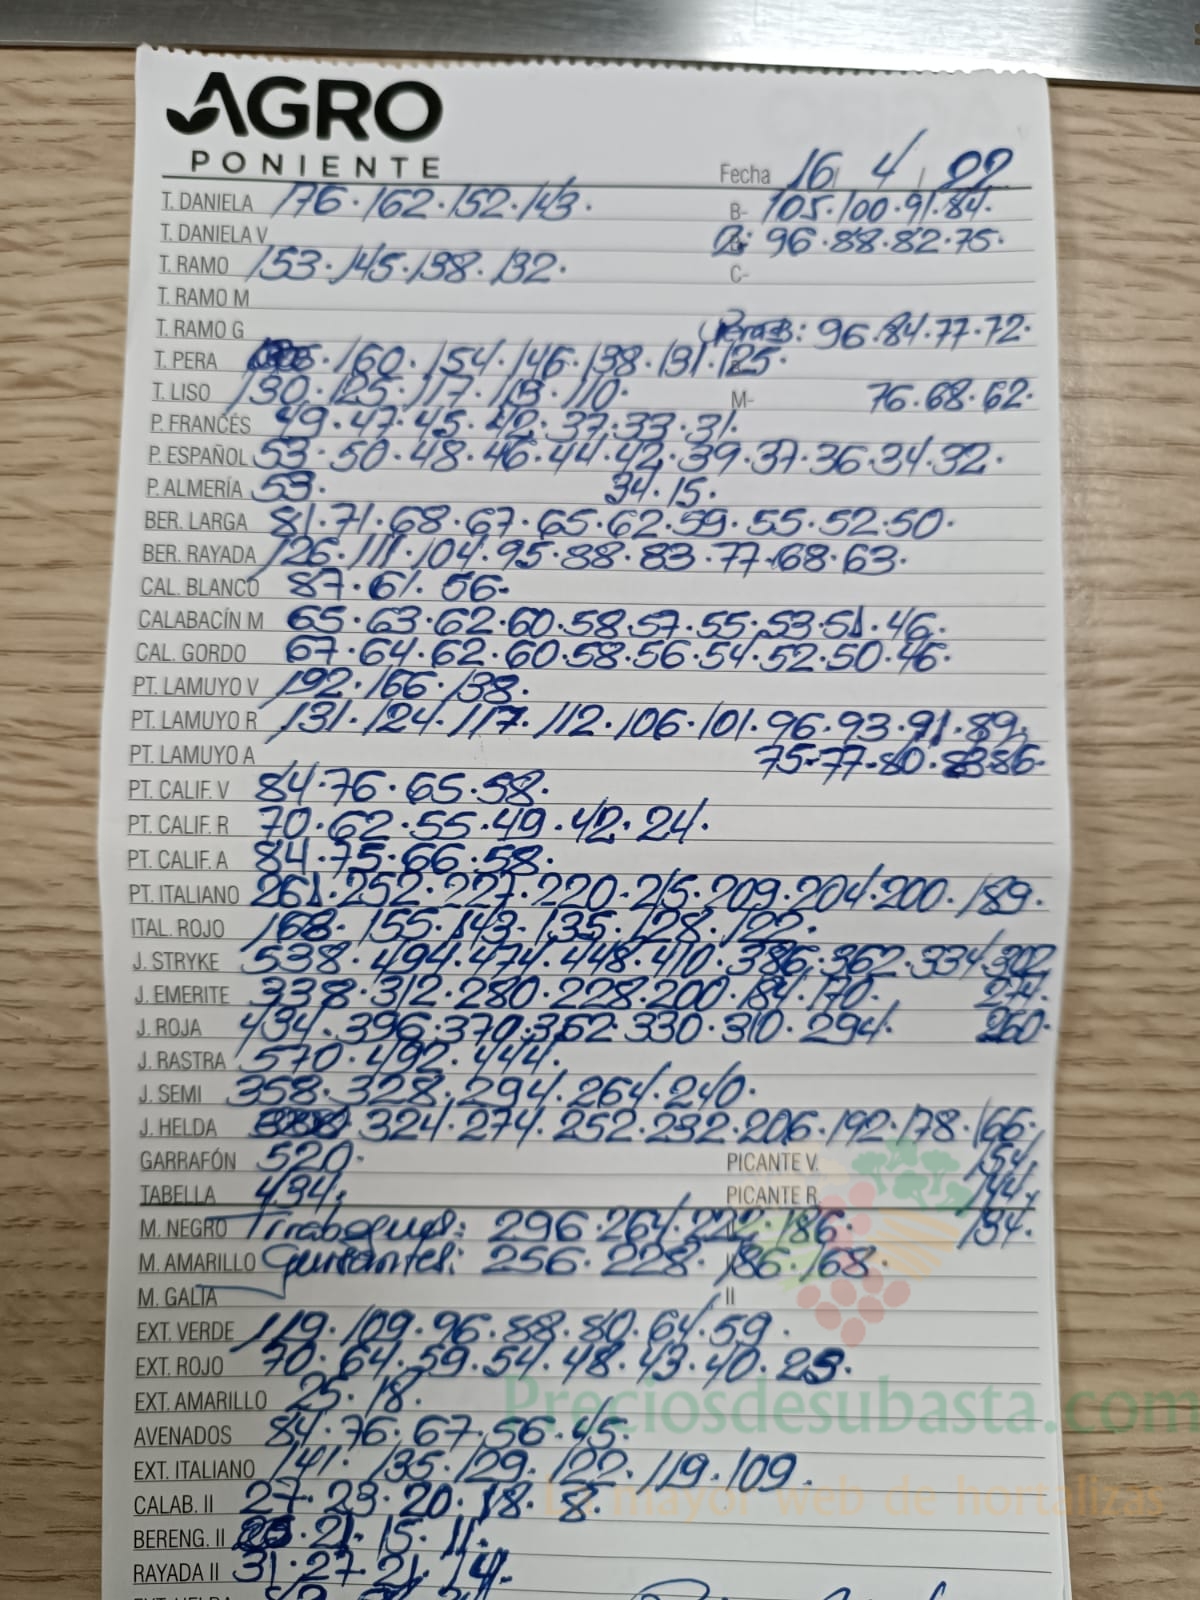 AGRO
PONIENTE
Fecha 16/ 4/ 22
T. DANIELA 176·162·152·143. B- 105·100·91·84.
T. DANIELA V 96·88·82·75·
T. RAMO 153·145·138·132· C-
T. RAMO M
T. RAMO G Pera B: 96·84·77·72·
T. PERA 160·154·146·138·131·125·
T. LISO 130·125·117·113·110· M- 76·68·62·
P. FRANCÉS 49·47·45·42·37·33·31·
P. ESPAÑOL 53·50·48·46·44·42·39·37·36·34·32·
P. ALMERÍA 53· 34·15·
BER. LARGA 81·71·68·67·65·62·59·55·52·50·
BER. RAYADA 126·111·104·95·88·83·77·68·63·
CAL. BLANCO 87·61·56·
CALABACÍN M 65·63·62·60·58·57·55·53·51·46·
CAL. GORDO 67·64·62·60·58·56·54·52·50·46·
PT. LAMUYO V 192·166·138·
PT. LAMUYO R 131·124·117·112·106·101·96·93·91·89·
PT. LAMUYO A 75·77·80·83·86·
PT. CALIF. V 84·76·65·58·
PT. CALIF. R 70·62·55·49·42·24·
PT. CALIF. A 84·75·66·58·
PT. ITALIANO 261·252·227·220·215·209·204·200·189·
ITAL. ROJO 168·155·143·135·128·122·
J. STRYKE 538·494·474·448·410·386·362·334·302
J. EMERITE 338·312·280·228·200·184·170· 274·
J. ROJA 434·396·370·362·330·310·294· 260·
J. RASTRA 570·492·444·
J. SEMI 358·328·294·264·240·
J. HELDA 324·274·252·232·206·192·178·166·
GARRAFÓN 520· PICANTE V. 154·
TABELLA 434· PICANTE R. 144·
M. NEGRO Tirabeques: 296·264·222·186· 134·
M. AMARILLO Guisantes: 256·228·186·168·
M. GALIA II
EXT. VERDE 119·109·96·88·80·64·59·
EXT. ROJO 70·64·59·54·48·43·40·23·
EXT. AMARILLO 25·18·
Preciosdesubasta.com
AVENADOS 84·76·67·56·45·
EXT. ITALIANO 141·135·129·122·119·109·
CALAB. II 27·23·20·18·8·
La mayor web de hortalizas
BERENG. II 21·15·11·
RAYADA II 31·27·21·14·